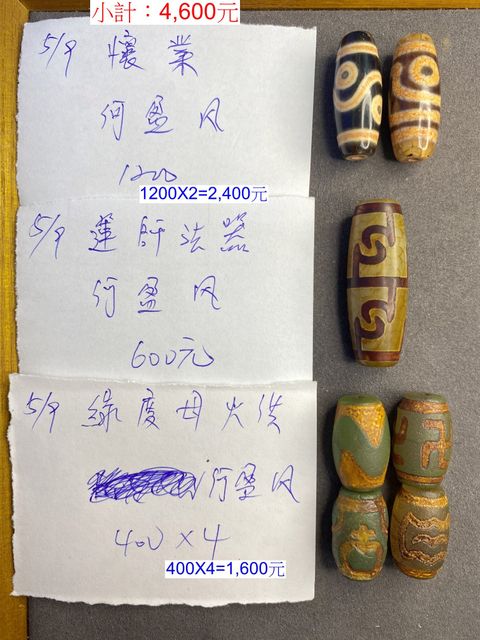 小計：4,600元
5/9 懷業
何盈风
1200
1200X2=2,400元
5/9 蓮師法器
何盈风
600元
5/9 綠度母火供
何盈风
400×4
400X4=1,600元